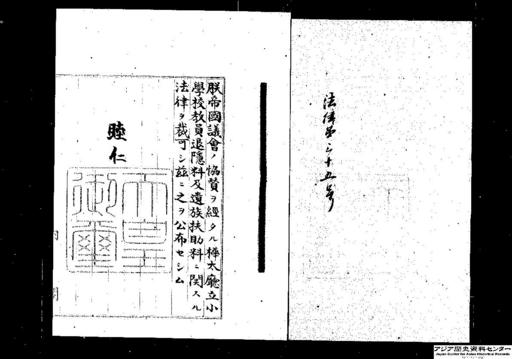 法律第三十五号
朕帝國議會ノ協贊ヲ經タル樺太廳立小
學校教員退隱料及遺族扶助料ニ関スル
法律ヲ裁可シ茲ニ之ヲ公布セシム
睦仁
天皇
御璽
アジア歴史資料センター
Japan Center for Asian Historical Records